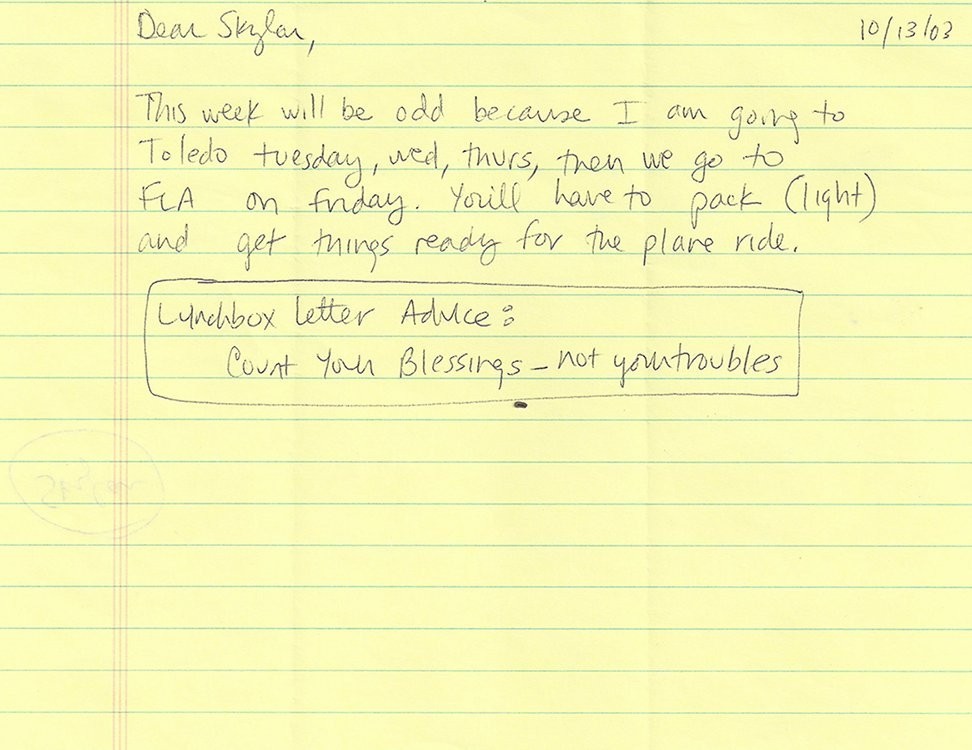 Dear Skylar,
10/13/03
This week will be odd because I am going to
Toledo tuesday, wed, thurs, then we go to
FLA on friday. You'll have to pack (light)
and get things ready for the plane ride.
Lunchbox letter Advice:
Count Your Blessings - not your troubles